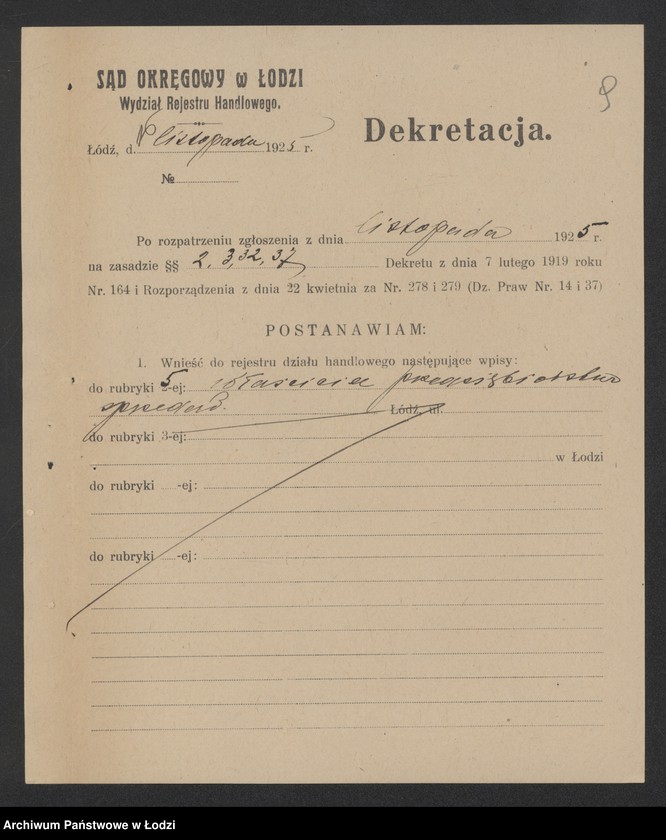 SĄD OKRĘGOWY w ŁODZI
Wydział Rejestru Handlowego.
9
Dekretacja.
Łódź, d. listopada 1925 r.
№
Po rozpatrzeniu zgłoszenia z dnia listopada 1925 r.
na zasadzie §§ 2, 3, 32, 37 Dekretu z dnia 7 lutego 1919 roku
Nr. 164 i Rozporządzenia z dnia 22 kwietnia za Nr. 278 i 279 (Dz. Praw Nr. 14 i 37)
POSTANAWIAM:
1. Wnieść do rejestru działu handlowego następujące wpisy:
do rubryki 5-ej: właściciel przedsiębiorstwo
Łódź, ul.
do rubryki 3-ej:
w Łodzi
do rubryki -ej:
do rubryki -ej:
Archiwum Państwowe w Łodzi